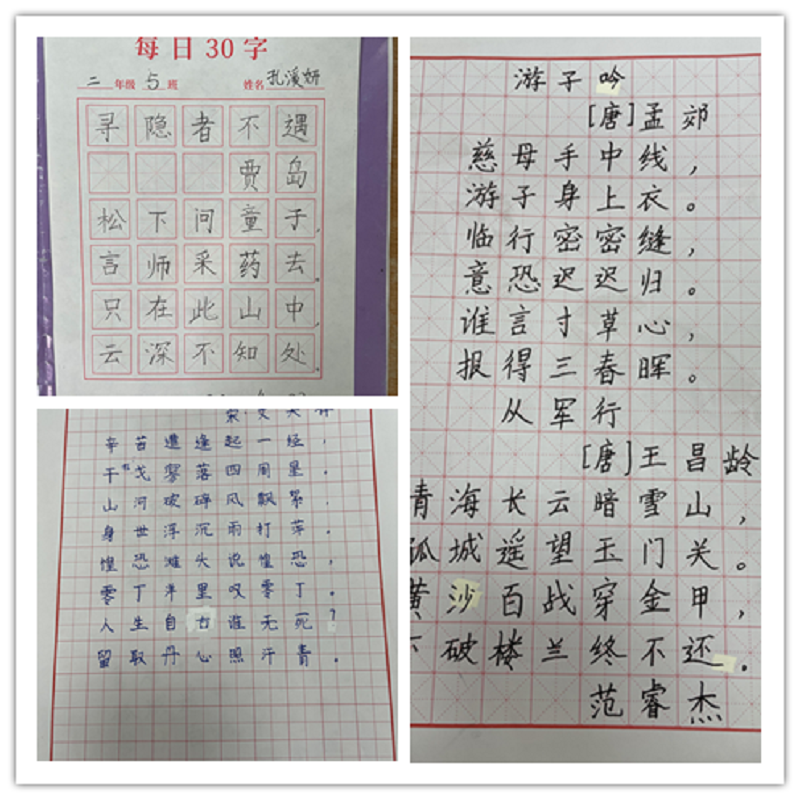 每日30字
二年级5班 姓名孔溪妍
寻隐者不遇
贾岛
松下问童子,
言师采药去。
只在此山中,
云深不知处。
宋.文天祥
辛苦遭逢起一经,
干戈寥落四周星。
山河破碎风飘絮,
身世浮沉雨打萍。
惶恐滩头说惶恐,
零丁洋里叹零丁。
人生自古谁无死?
留取丹心照汗青。
游子吟
[唐]孟郊
慈母手中线,
游子身上衣。
临行密密缝,
意恐迟迟归。
谁言寸草心,
报得三春晖。
从军行
[唐]王昌龄
青海长云暗雪山,
孤城遥望玉门关。
黄沙百战穿金甲,
不破楼兰终不还.
范睿杰